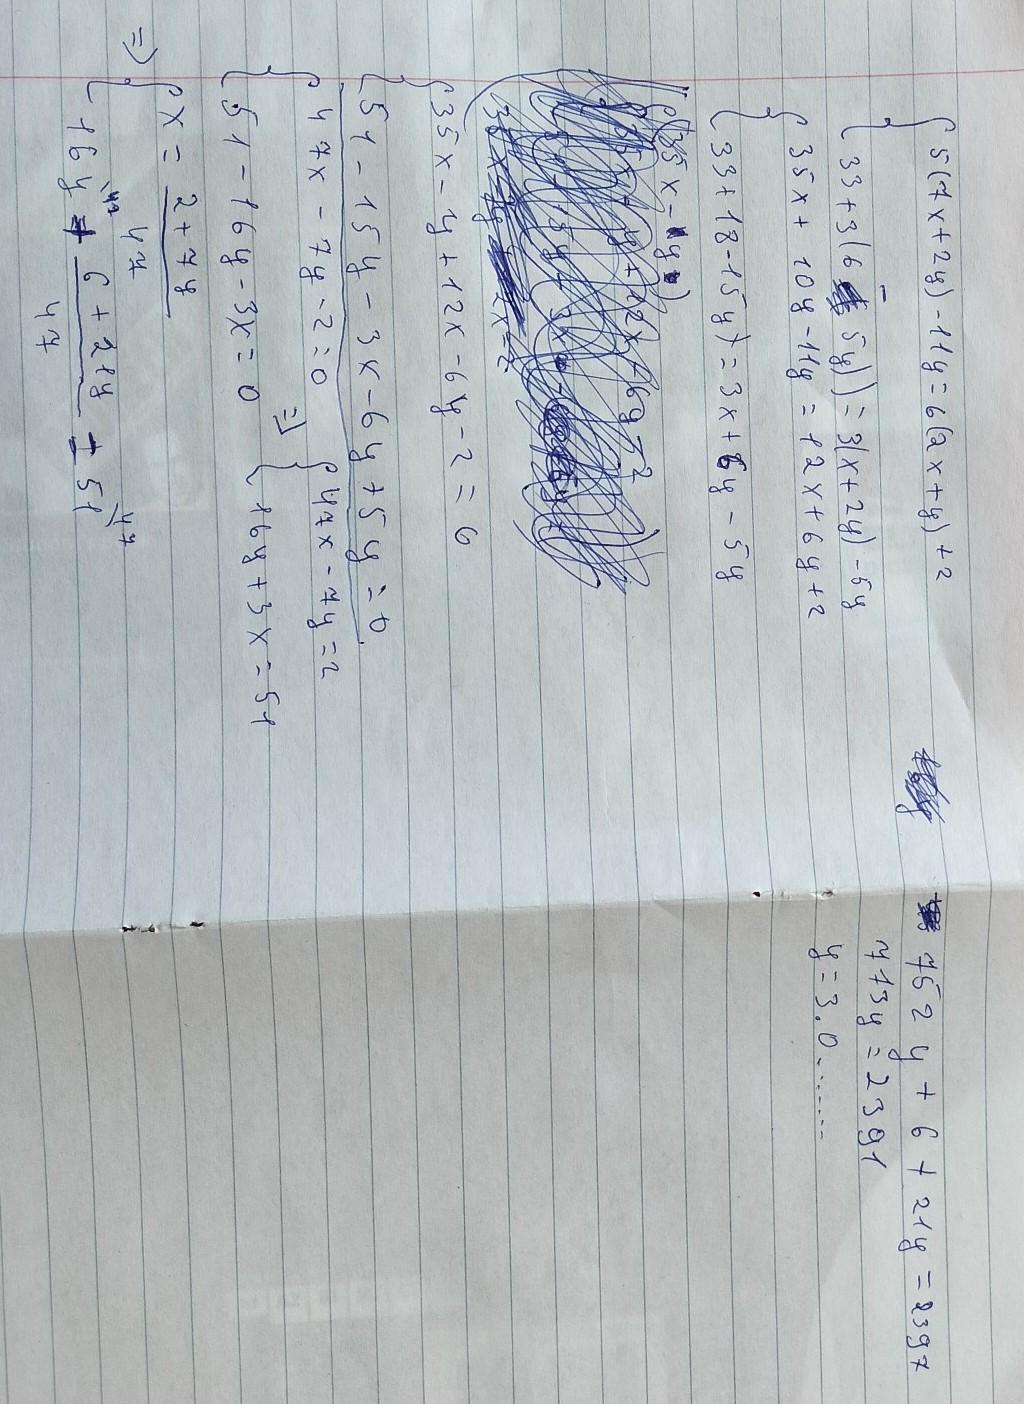 { 5(7x+2y) - 11y = 6(2x+y) + 2
{ 33+3(6 - 5y)) = 3(x+2y) - 5y
{ 35x + 10y - 11y = 12x + 6y + 2
{ 33+18-15y) = 3x+6y - 5y
{ 35x - 1y + 12x - 6y - 2 = 6
{ 51 - 15y - 3x - 6y + 5y = 0
{ 47x - 7y - 2 = 0 => { 47x - 7y = 2
{ 51 - 16y - 3x = 0 { 16y + 3x = 51
=> { x = 2+7y
47
{ 16y + 6+21y = 51
47 47 47
752y + 6 + 21y = 2397
773y = 2391
y = 3.0.......